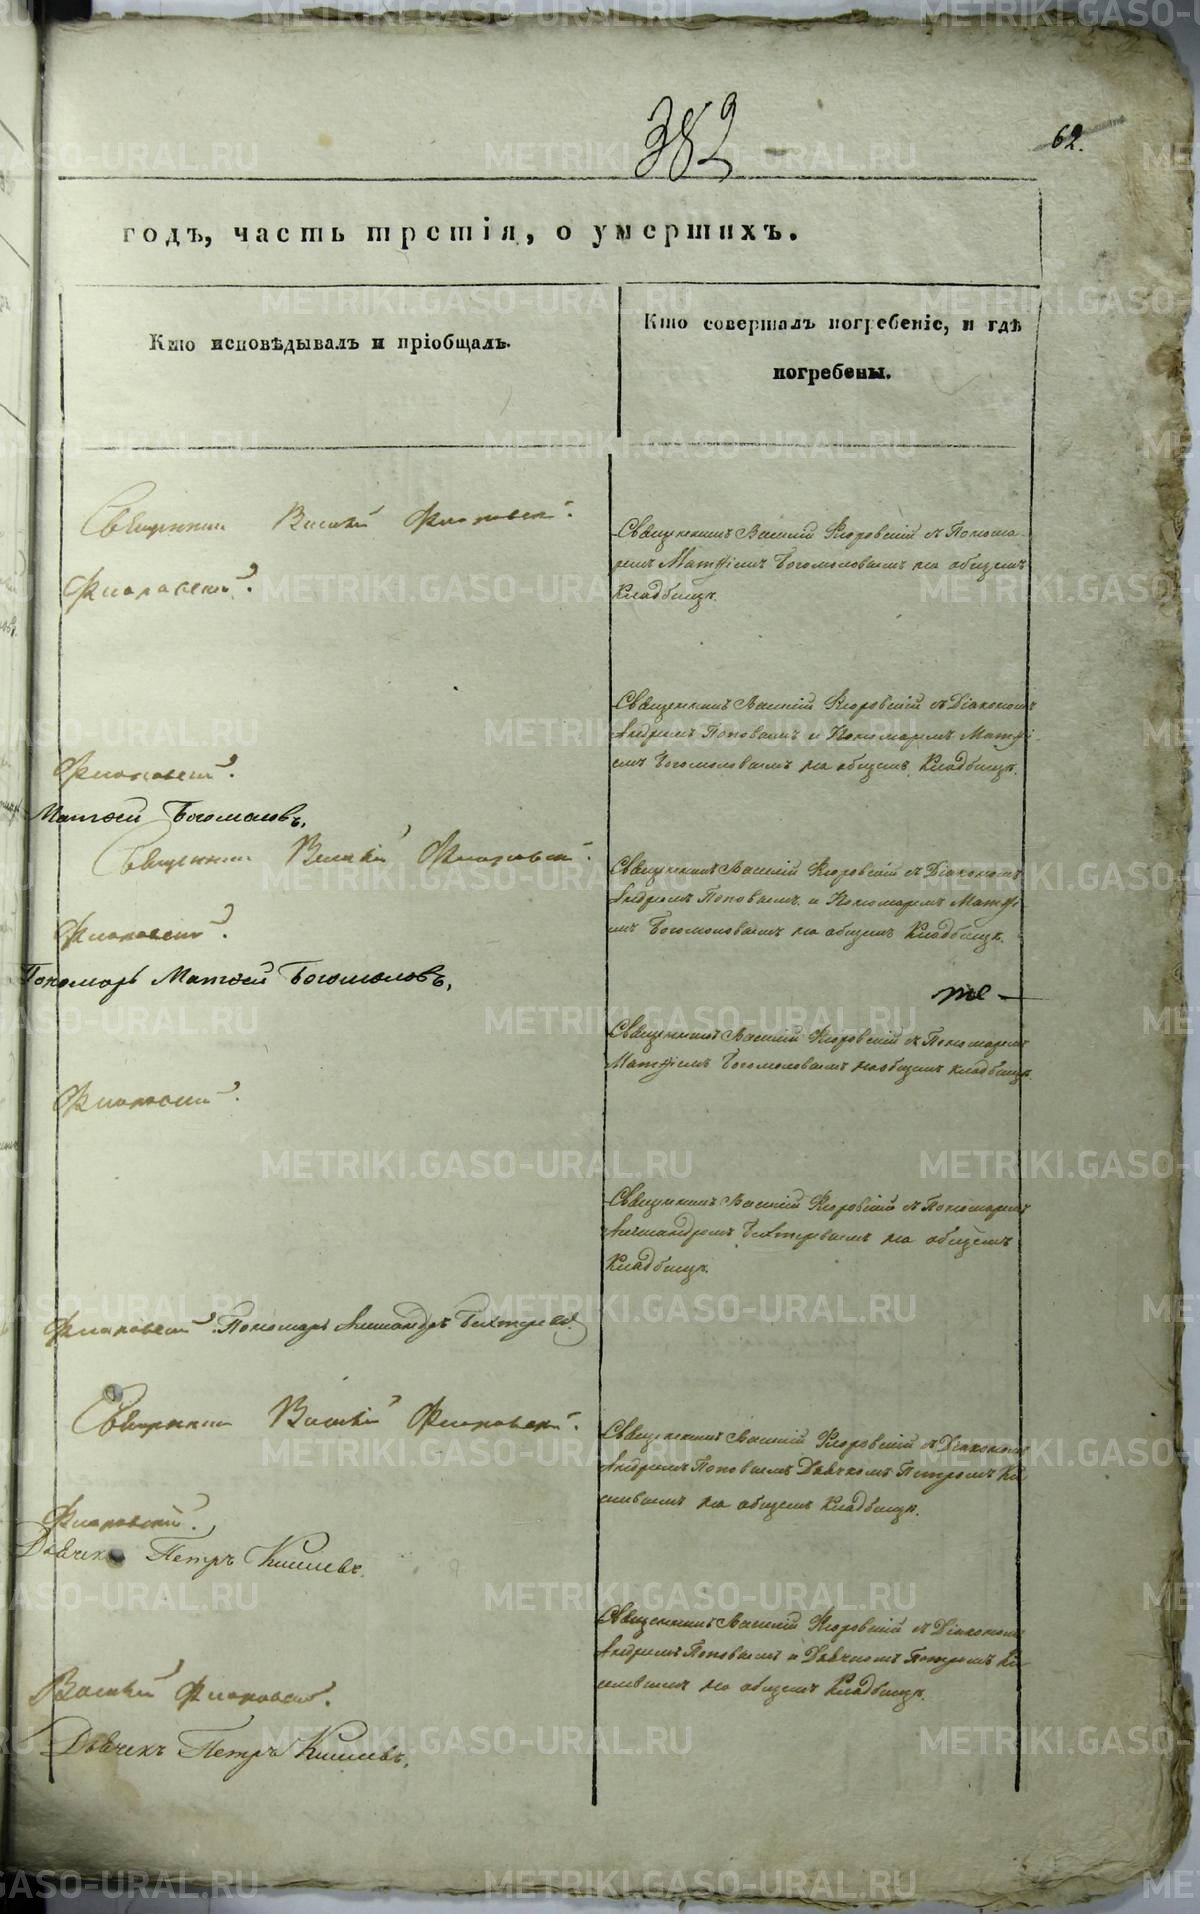 382
62.
годъ, часть третія, о умершихъ.
Кто исповѣдывалъ и пріобщалъ.
Кто совершалъ погребеніе, и гдѣ
погребены.
Священникъ Василій Флоровскій.
Флоровскій.
Священникъ Василій Флоровскій съ Понома-
ремъ Матѳіемъ Богомоловымъ на общемъ
Кладбищѣ.
Священникъ Василій Флоровскій съ Діакономъ
Андреемъ Поповымъ и Пономаремъ Матѳі-
емъ Богомоловымъ на общемъ Кладбищѣ.
Флоровскій.
Матѳей Богомоловъ,
Священникъ Василій Флоровскій.
Священникъ Василій Флоровскій съ Діакономъ
Андреемъ Поповымъ и Пономаремъ Матѳі
емъ Богомоловымъ на общемъ Кладбищѣ.
Флоровскій.
Пономарь Матѳей Богомоловъ,
те —
Священникъ Василій Флоровскій съ Пономаремъ
Матѳіемъ Богомоловымъ на общемъ кладбищѣ.
Флоровскій.
Священникъ Василій Флоровскій съ Пономаремъ
Александромъ Бехтеревымъ на общемъ
Кладбищѣ.
Флоровскій. Пономарь Александръ Бехтеревъ
Священникъ Василій Флоровскій.
Священникъ Василій Флоровскій съ Діакономъ
Андреемъ Поповымъ Дьячкомъ Петромъ Ки
селевымъ на общемъ Кладбищѣ.
Флоровскій.
Дьячекъ Петръ Киселевъ.
Священникъ Василій Флоровскій съ Діакономъ
Андреемъ Поповымъ и Дьячкомъ Петромъ Ки
селевымъ на общемъ Кладбищѣ.
Василій Флоровскій.
Дьячекъ Петръ Киселевъ,
METRIKI.GASO-URAL.RU